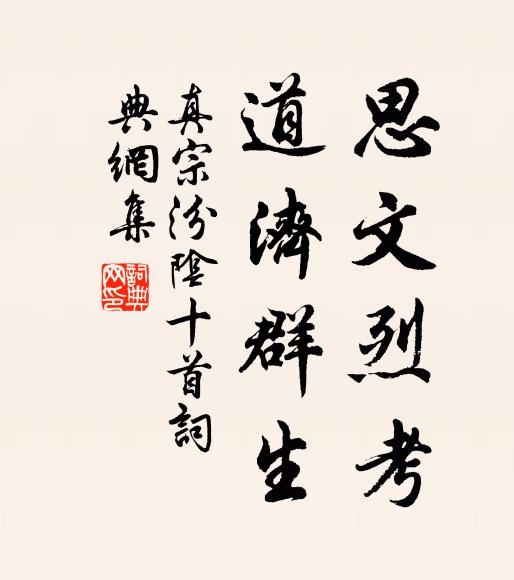 思文烈考
道濟群生
真宗汾陰十首詞
典網集
詞典網印